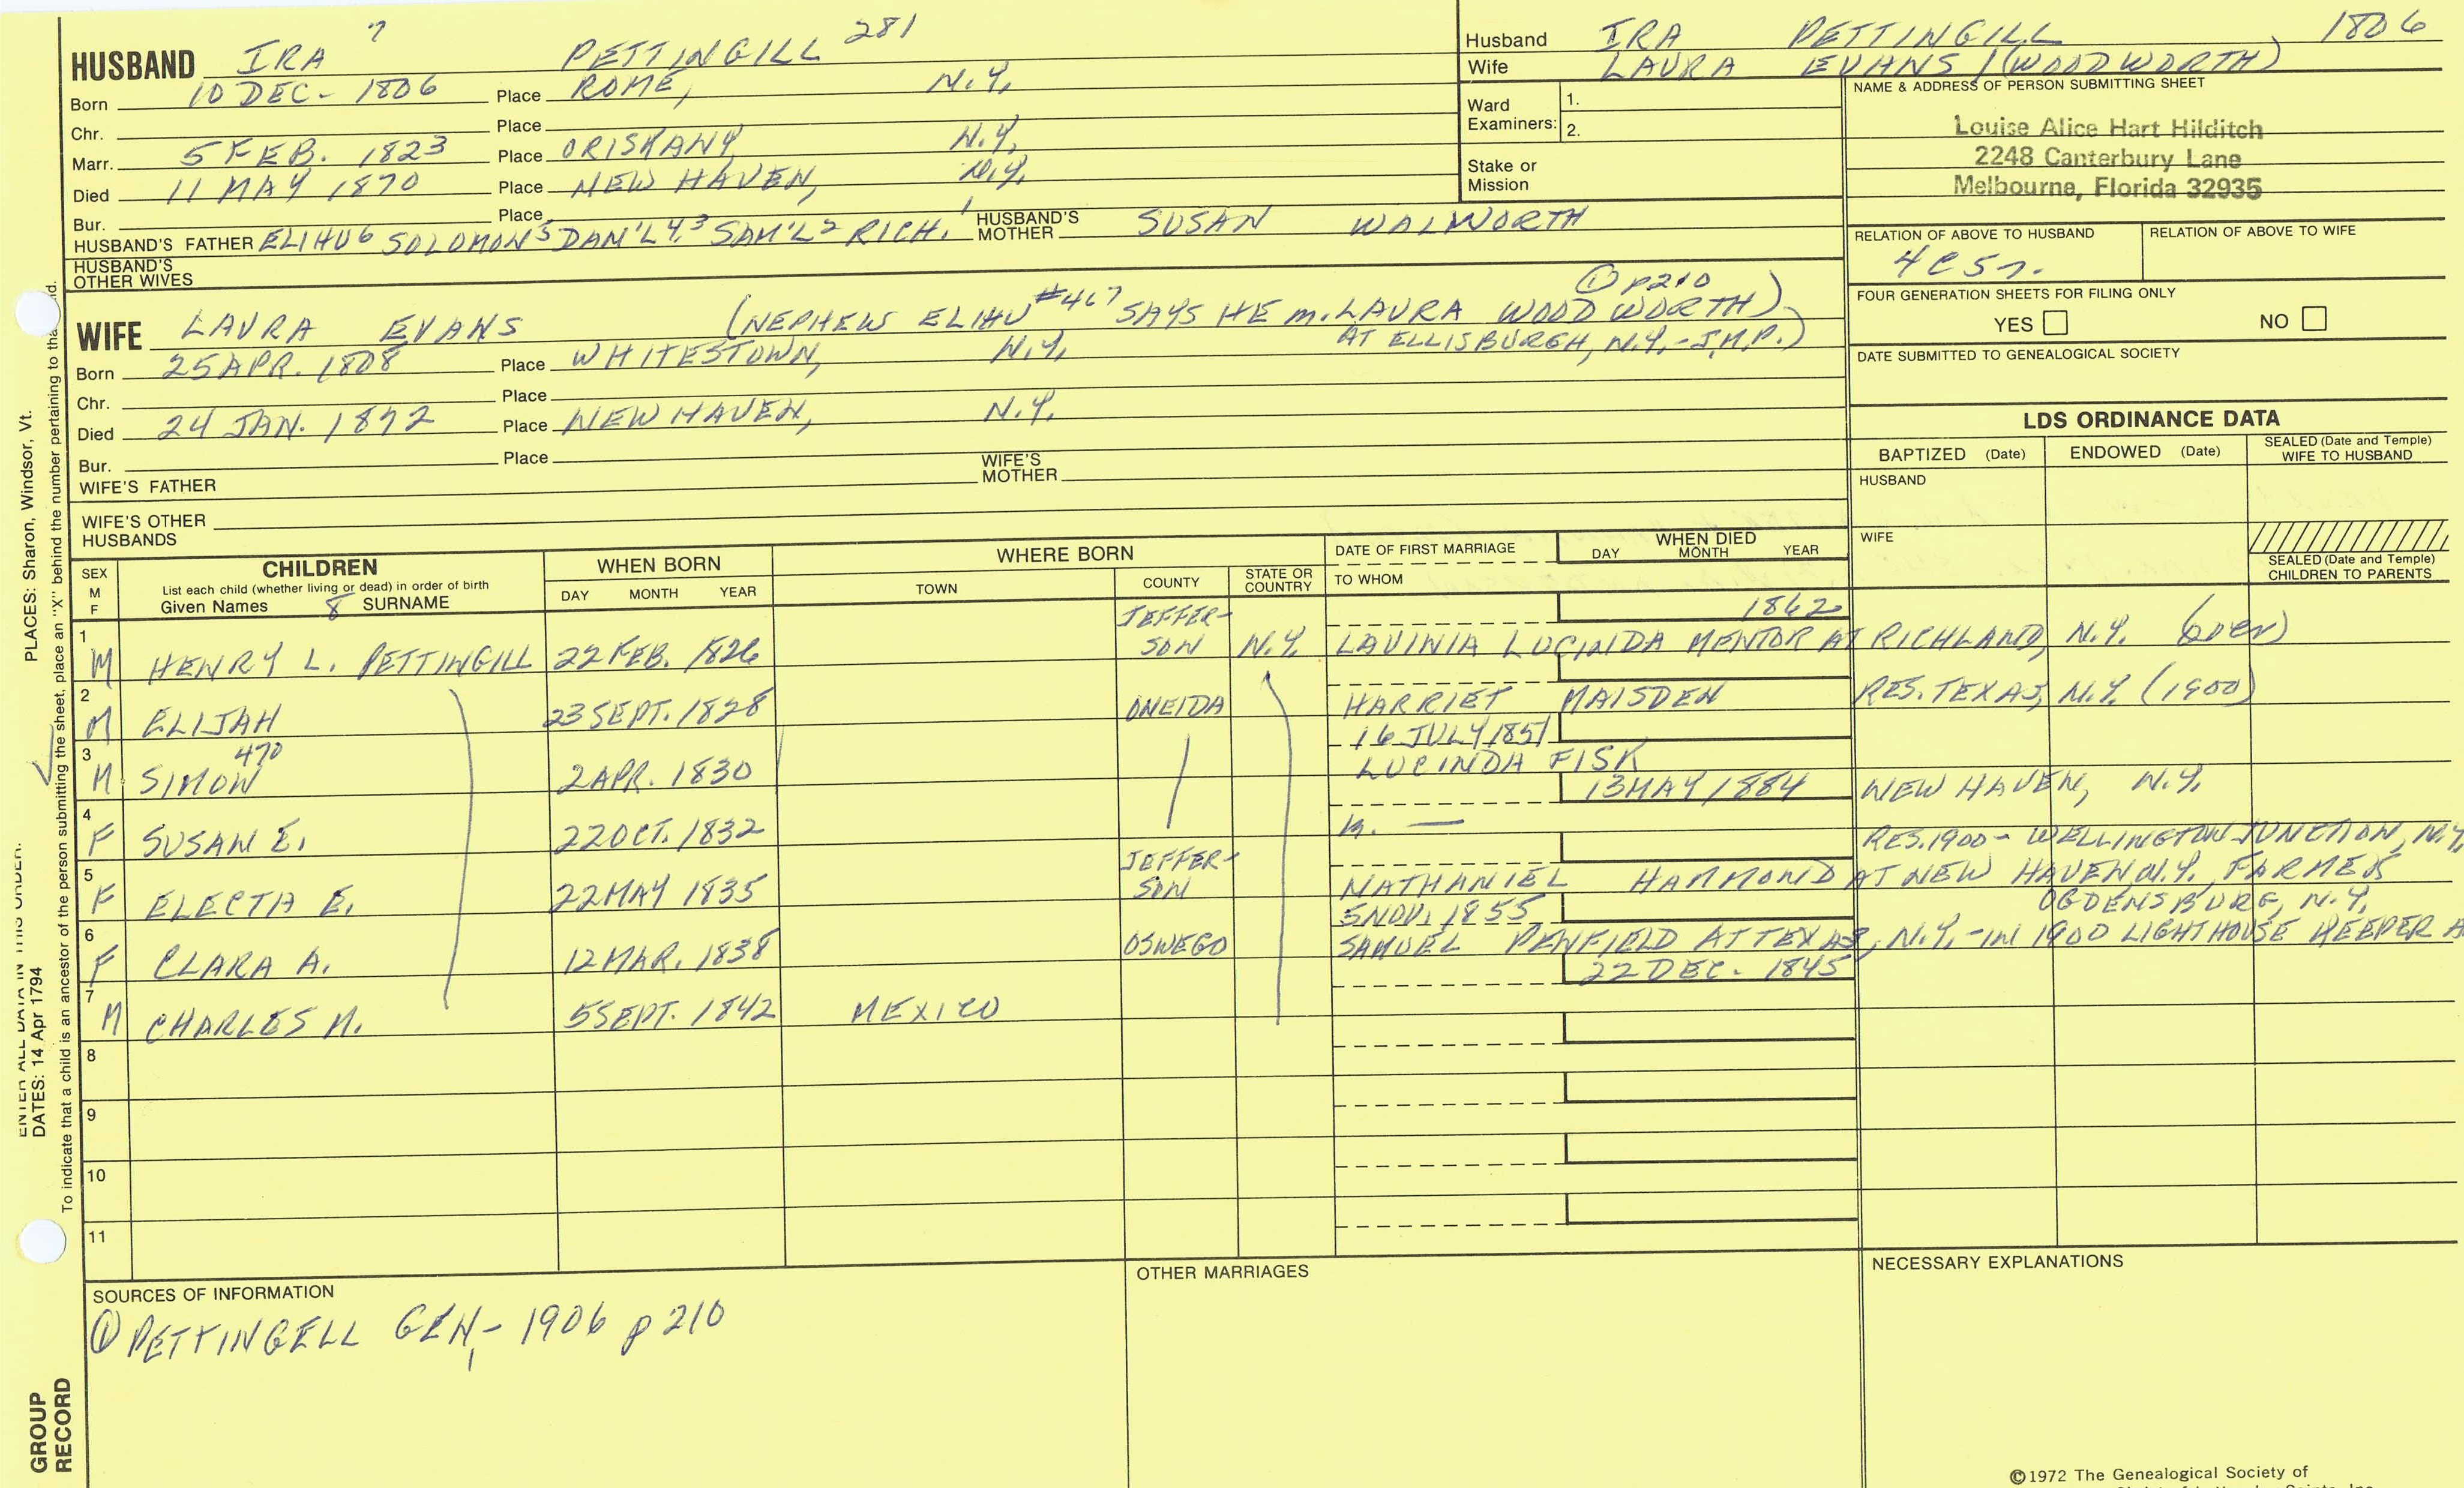 HUSBAND IRA 7 PETTINGILL 281
Born 10 DEC - 1806 Place ROME, N.Y.
Chr. Place
Marr. 5 FEB. 1823 Place ORISKANY N.Y.
Died 11 MAY 1870 Place NEW HAVEN, N.Y.
Bur. Place
HUSBAND'S FATHER ELIHU 6 SOLOMON 5 DAN'L 4,3 SAM'L 2 RICH. 1 HUSBAND'S MOTHER SUSAN WALWORTH
HUSBAND'S OTHER WIVES
Husband IRA PETTINGILL 1806
Wife LAURA EVANS / (WOODWORTH)
Ward Examiners: 1.
2.
Stake or Mission
NAME & ADDRESS OF PERSON SUBMITTING SHEET
Louise Alice Hart Hilditch
2248 Canterbury Lane
Melbourne, Florida 32935
RELATION OF ABOVE TO HUSBAND RELATION OF ABOVE TO WIFE
4C5r.
FOUR GENERATION SHEETS FOR FILING ONLY
YES NO
DATE SUBMITTED TO GENEALOGICAL SOCIETY
① p210
WIFE LAURA EVANS (NEPHEW ELIHU #467 SAYS HE m. LAURA WOODWORTH)
AT ELLISBURGH, N.Y. - J.M.P.)
Born 25 APR. 1808 Place WHITESTOWN, N.Y.
Chr. Place
Died 24 JAN. 1892 Place NEW HAVEN, N.Y.
Bur. Place
WIFE'S FATHER WIFE'S MOTHER
WIFE'S OTHER HUSBANDS
LDS ORDINANCE DATA
BAPTIZED (Date) ENDOWED (Date) SEALED (Date and Temple) WIFE TO HUSBAND
HUSBAND
WIFE
SEALED (Date and Temple) CHILDREN TO PARENTS
SEX M F
CHILDREN
List each child (whether living or dead) in order of birth
Given Names 8 SURNAME
WHEN BORN
DAY MONTH YEAR
WHERE BORN
TOWN COUNTY STATE OR COUNTRY
DATE OF FIRST MARRIAGE
TO WHOM
WHEN DIED
DAY MONTH YEAR
1862
1 M HENRY L. PETTINGILL 22 FEB. 1826 JEFFERSON N.Y. LAVINIA LUCINDA MENTOR AT RICHLAND, N.Y. (over)
2 M ELIJAH 23 SEPT. 1828 ONEIDA HARRIET MAISDEN RES. TEXAS, N.Y. (1900)
16 JULY 1851
3 M SIMON 470 2 APR. 1830 LUCINDA FISK
13 MAY 1884 NEW HAVEN, N.Y.
4 F SUSAN E. 22 OCT. 1832
RES. 1900 - WELLINGTON JUNCTION, N.Y.
5 F ELECTA E. 22 MAY 1835 JEFFERSON NATHANIEL HAMMOND AT NEW HAVEN N.Y. FARMER
5 NOV. 1855 OGDENSBURG, N.Y.
6 F CLARA A. 12 MAR. 1838 OSWEGO SAMUEL PENFIELD AT TEXAS, N.Y. - IN 1900 LIGHTHOUSE KEEPER A
22 DEC. 1845
7 M CHARLES M. 5 SEPT. 1842 MEXICO
8
9
10
11
SOURCES OF INFORMATION
① PETTINGELL GEN, - 1906 p 210
OTHER MARRIAGES
NECESSARY EXPLANATIONS
©1972 The Genealogical Society of
PLACES: Sharon, Windsor, Vt.
DATES: 14 Apr 1794
To indicate that a child is an ancestor of the person submitting the sheet, place an "X" behind the number pertaining to
GROUP RECORD